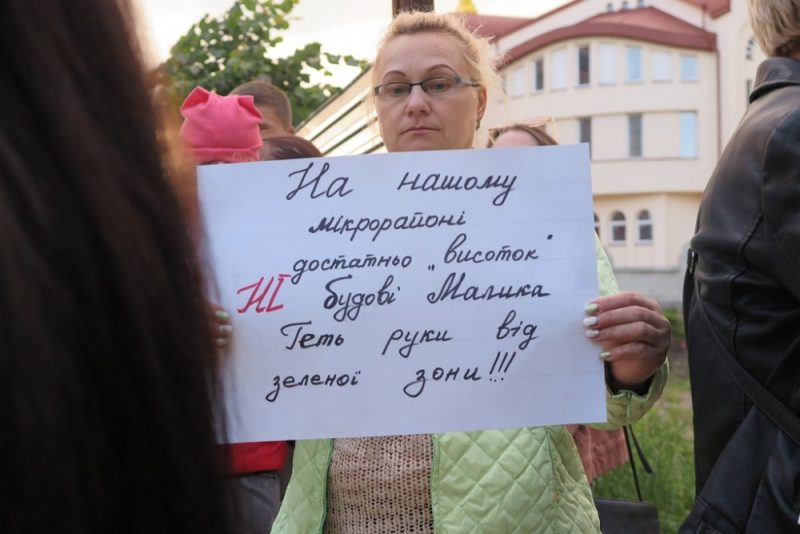 На нашому
мікрорайоні
достатньо „висоток"
НІ будові Малика
Геть руки від
зеленої зони!!!